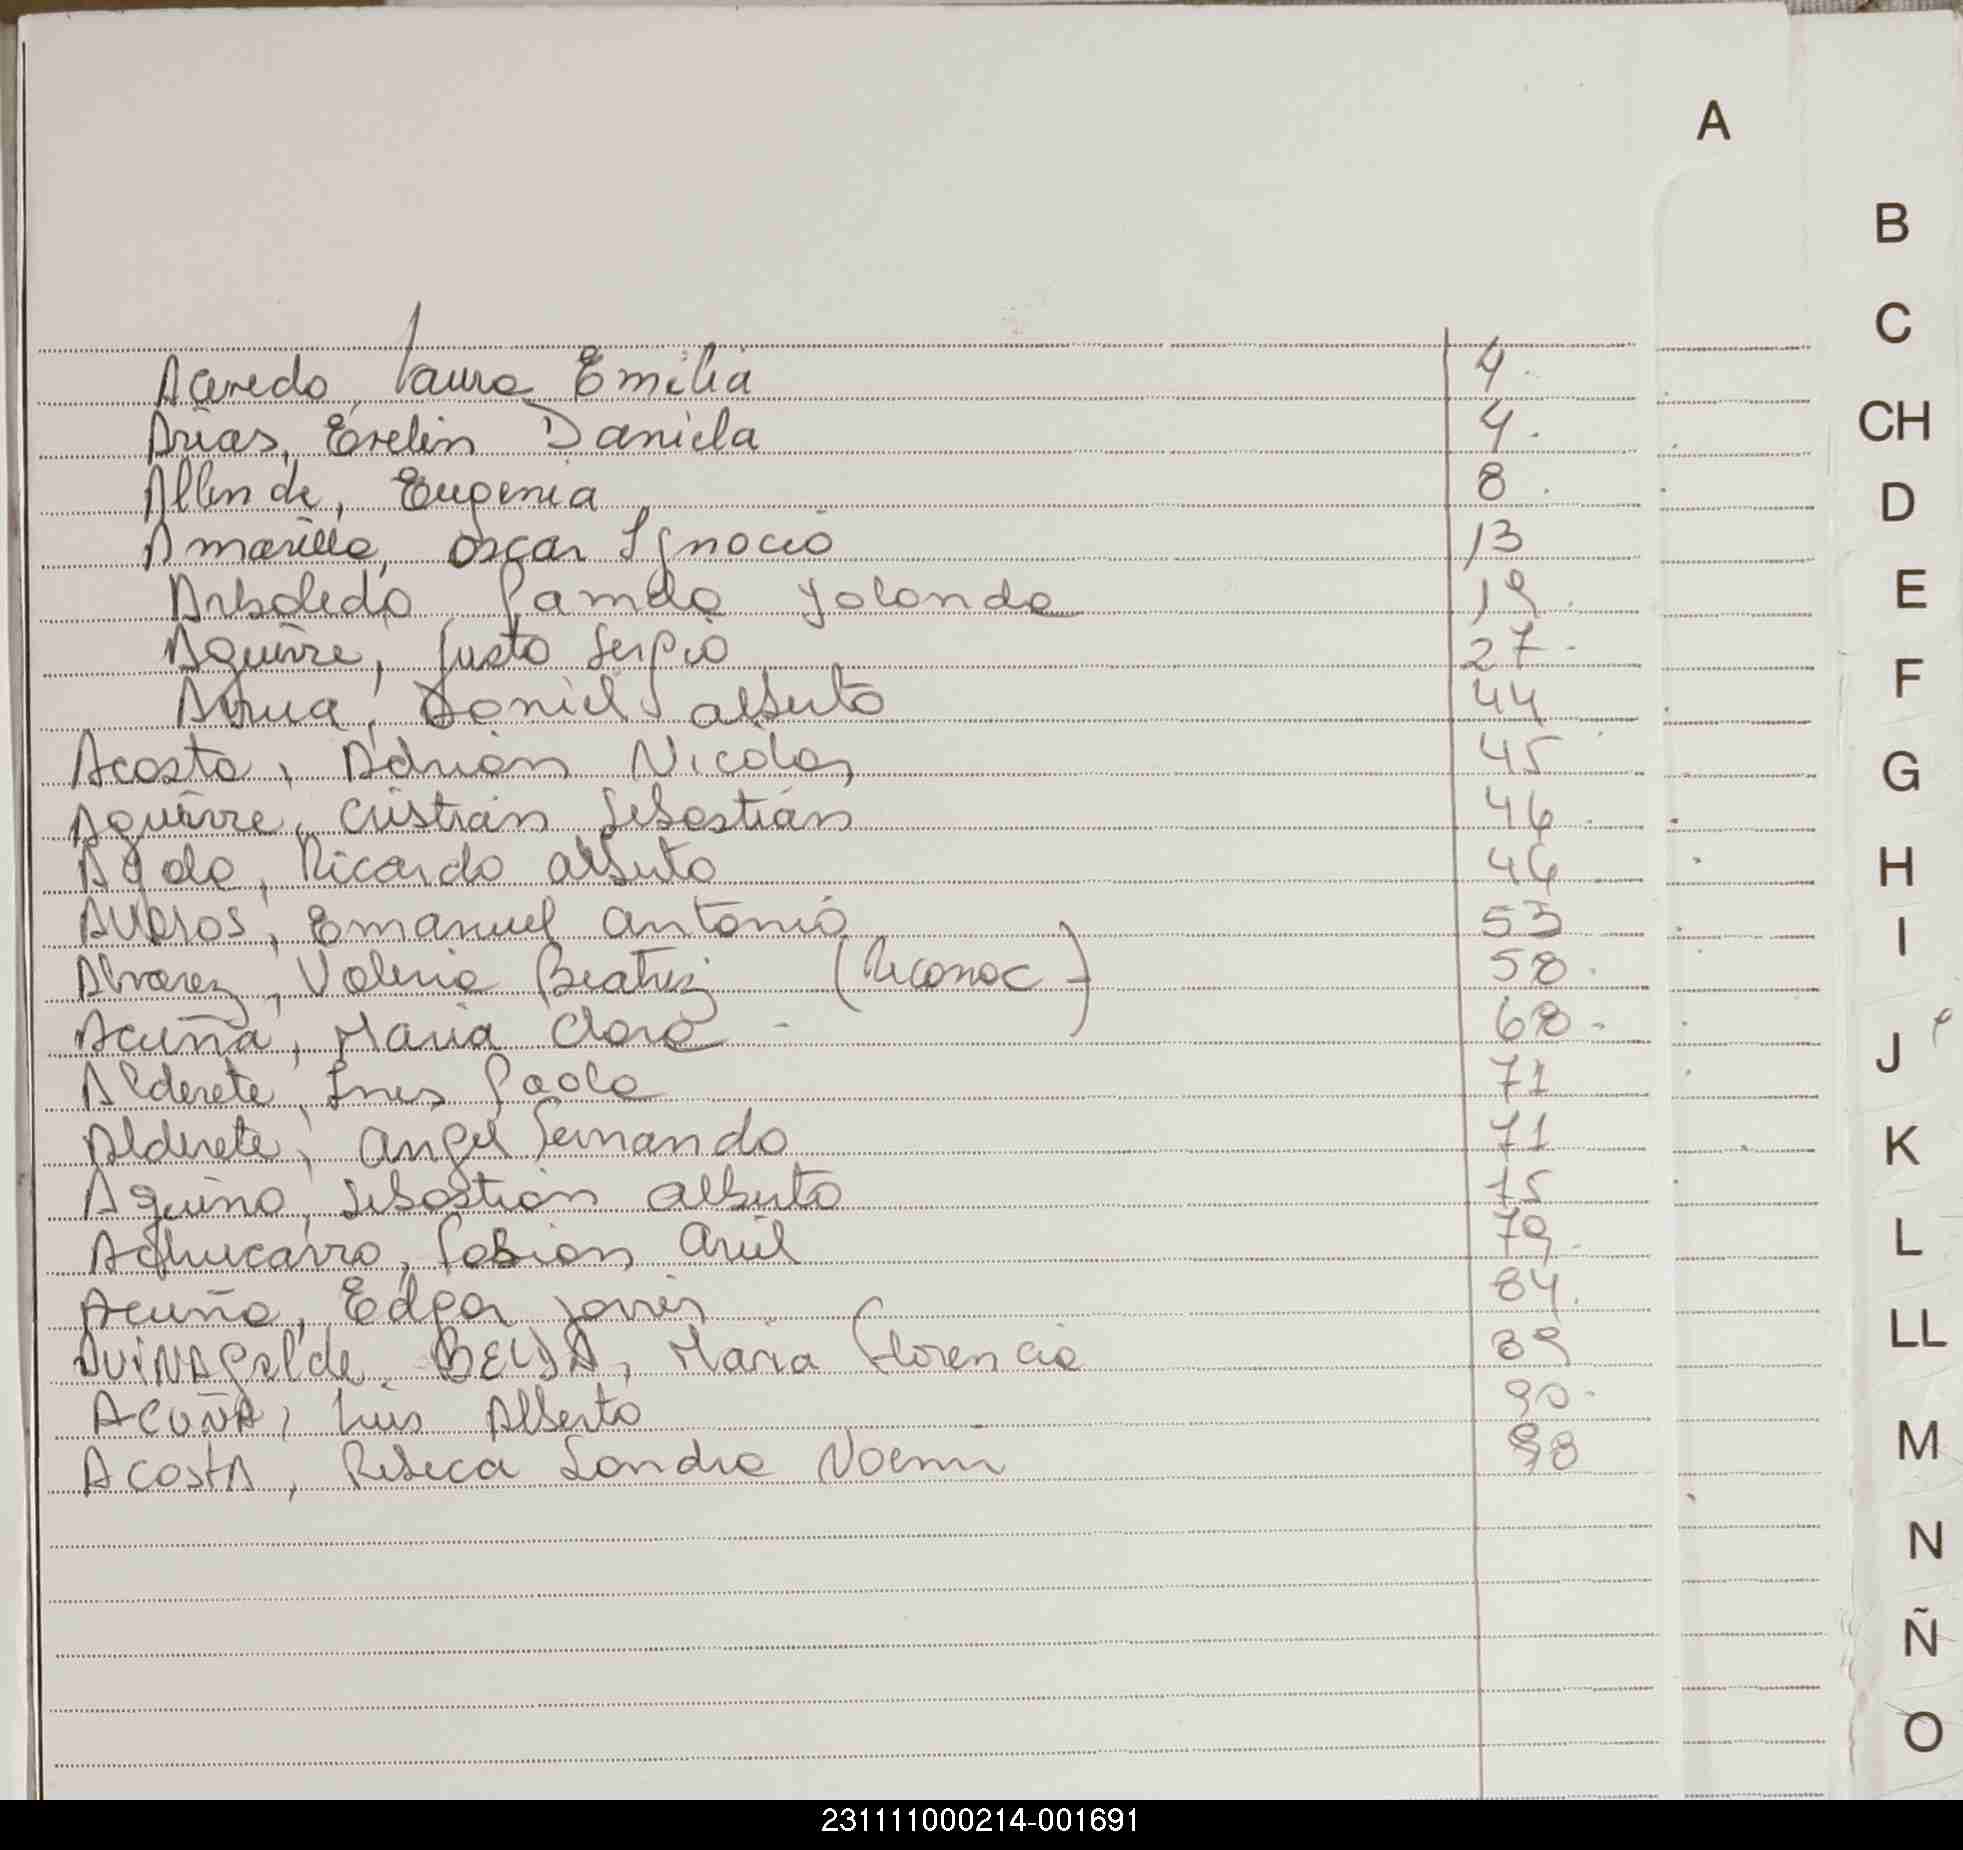 A
B
C
CH
D
E
F
G
H
I
J
K
L
LL
M
N
Ñ
O
Acevedo, Laura Emilia 4.
Arias, Evelin Daniela 4.
Allende, Eugenia 8.
Amarilla, Oscar Ignacio 13
Arboleda Pamela Yolanda 19.
Aguirre, Justo Sergio 27.
Daniel Alberto 44
Acosta, Adrián Nicolas 45
Aguirre, Cristian Sebastián 46
Ayala, Ricardo Alberto 46
Averos, Emanuel Antonio 53
Alvarez, Valeria Beatriz (Reconoc) 58.
Acuña, Maria Clara - 68.
Alderete, Ines Paola 71
Alderete, Angel Fernando 71
Aquino, Sebastián Alberto 75
Achucarro, Fabian Ariel 79.
Acuña, Edgar Javier 84.
Maria Florencia 89
Acuña, Luis Alberto 90.
Acosta, Rebeca Sandra Noemi 98
231111000214-001691